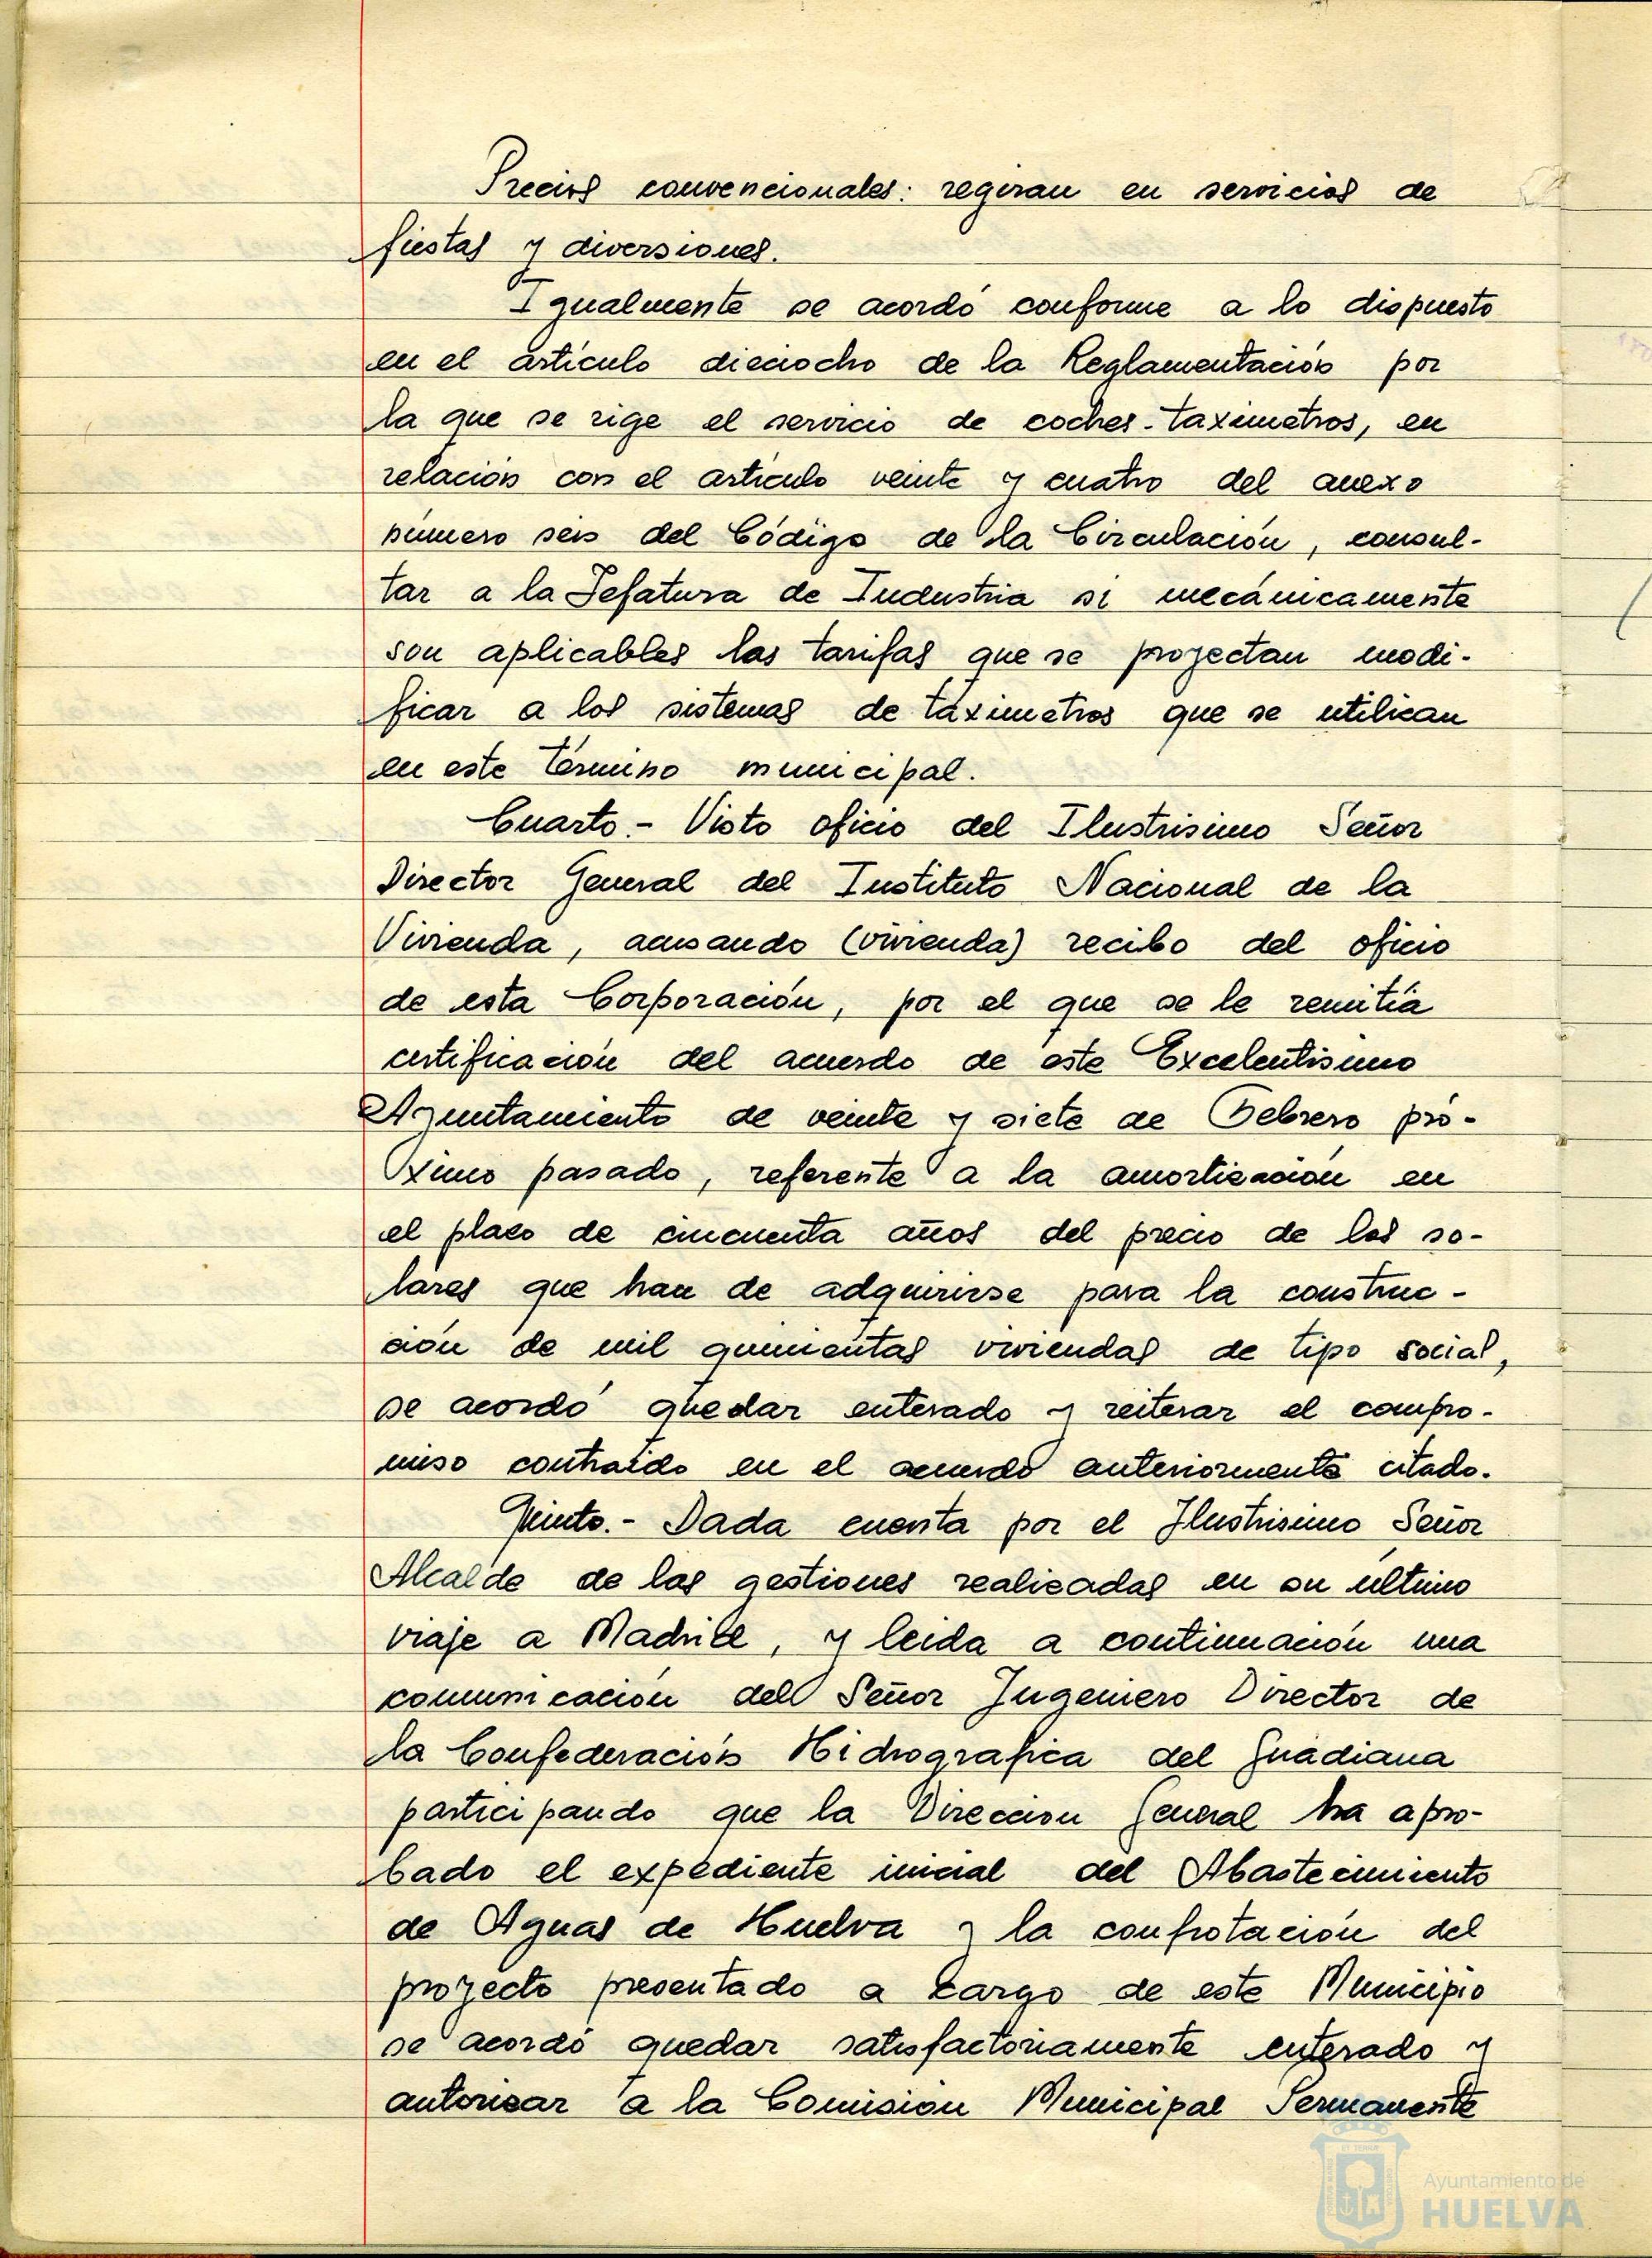 Precios convencionales: regiran en servicios de
fiestas y diversiones.
Igualmente se acordó conforme a lo dispuesto
en el artículo dieciocho de la Reglamentación por
la que se rige el servicio de coches-taximetros, en
relación con el artículo veinte y cuatro del anexo
número seis del Código de la Circulación, consul-
tar a la Jefatura de Industria si mecánicamente
son aplicables las tarifas que se proyectan modi-
ficar a los sistemas de táximetros que se utilizan
en este término municipal.
Cuarto.- Visto oficio del Ilustrisimo Señor
Director General del Instituto Nacional de la
Vivienda, acusando (vivienda) recibo del oficio
de esta Corporación, por el que se le remitía
certificación del acuerdo de este Excelentisimo
Ayuntamiento de veinte y siete de Febrero pró-
ximo pasado, referente a la amortización en
el plazo de cincuenta años del precio de los so-
lares que han de adquirirse para la construc-
ción de mil quinientas viviendas de tipo social,
se acordó quedar enterado y reiterar el compro-
miso contraído en el acuerdo anteriormente citado.
Quinto.- Dada cuenta por el Ilustrisimo Señor
Alcalde de las gestiones realizadas en su último
viaje a Madrid, y leida a continuación una
comunicación del Señor Ingeniero Director de
la Confederación Hidrografica del Guadiana
participando que la Direccion General ha apro-
bado el expediente inicial del Abastecimiento
de Aguas de Huelva y la confrotación del
proyecto presentado a cargo de este Municipio
se acordó quedar satisfactoriamente enterado y
autorizar a la Comision Municipal Permanente
Ayuntamiento de
HUELVA